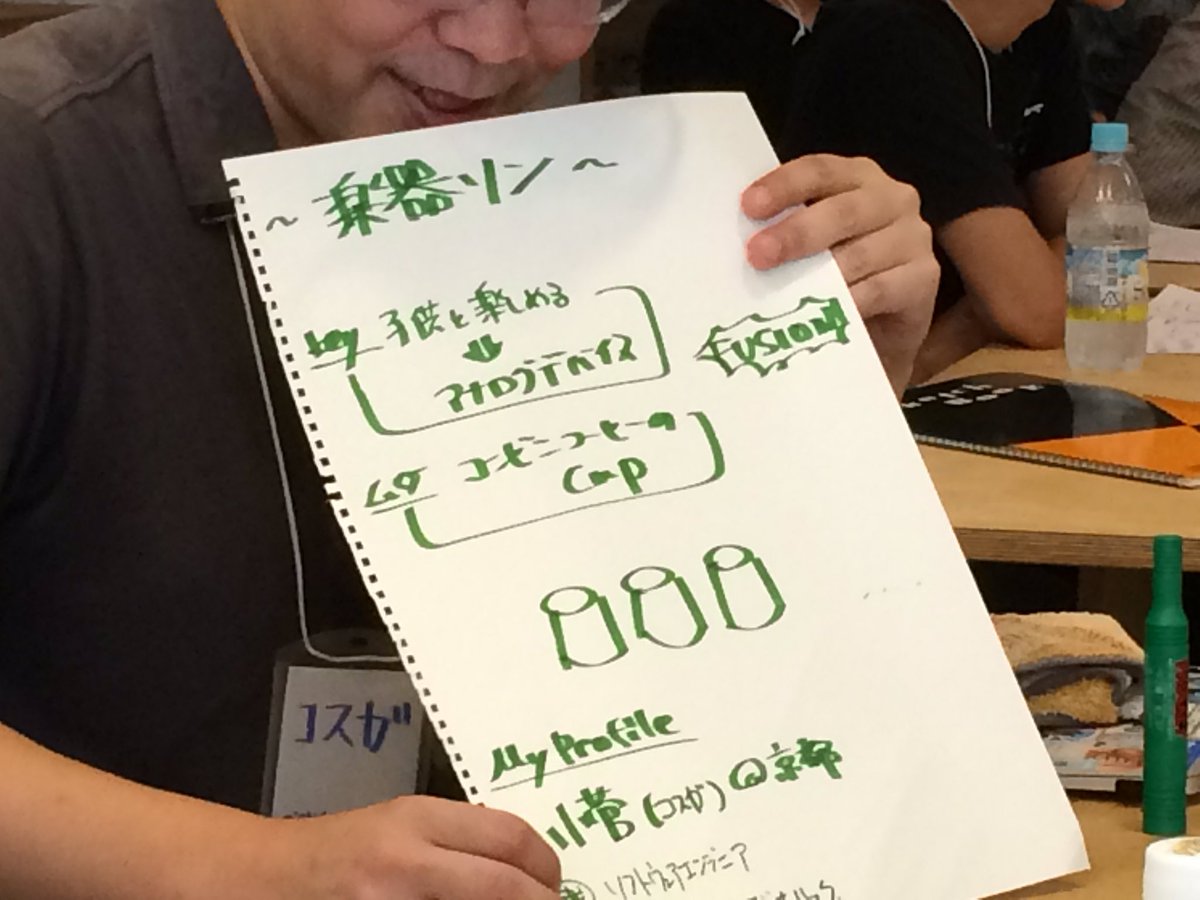 ～楽器リン～
key 子供と楽しめる
⇓
アナログデバイス
FUSION!
ムダ コービニコーヒーの
Cup
My Profile
小菅(コスガ)@京都
ソフトウェアエンジニア
コスガ